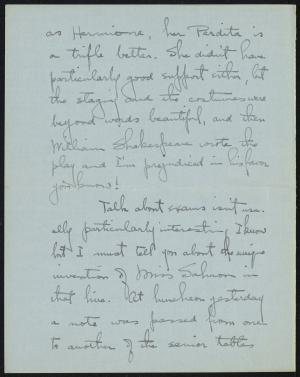 as Hermione, her Perdita is
a trifle better. She didn't have
particularly good support either, but
the staging and the costumes were
beyond words beautiful, and then
William Shakespeare wrote the
play and I'm prejudiced in his favor
you know!
Talk about exams isn't usu-
ally particularly interesting, I know
but I must tell you about the unique
invention of Miss Salmon in
that line. At luncheon yesterday
a note was passed from one
to another of the senior tables